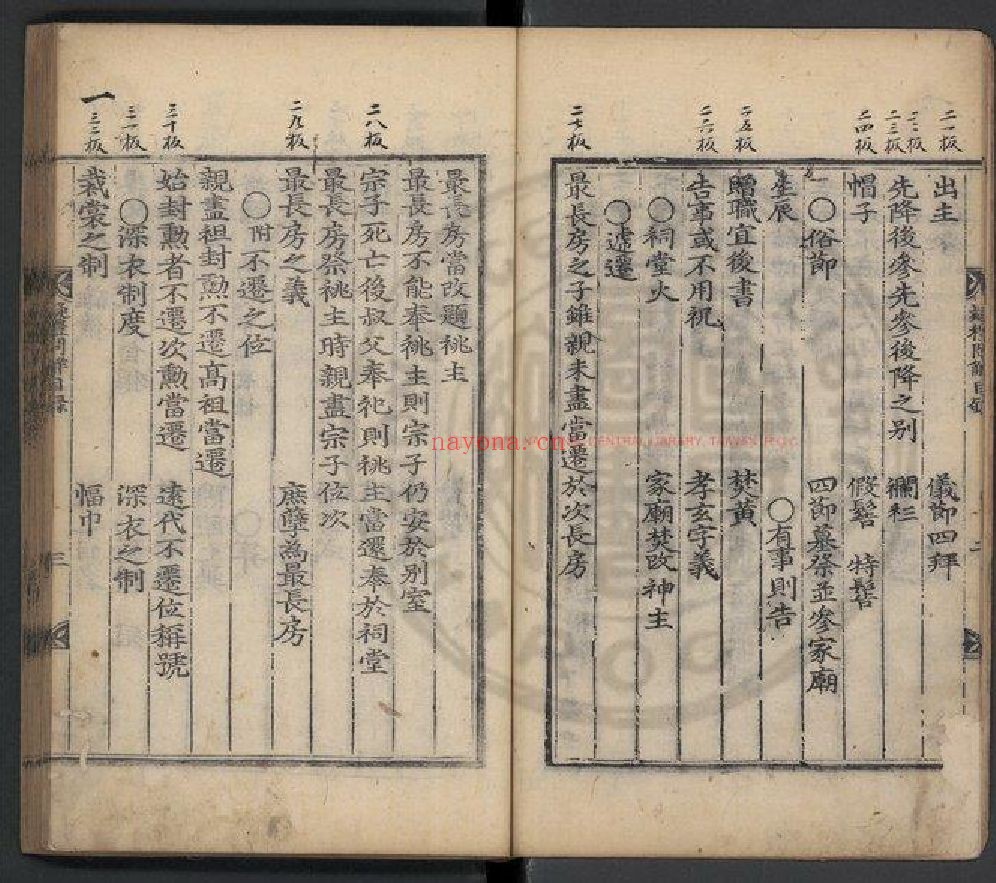 二一板
二二板
二三板
二四板
二五板
二六板
二七板
出主 儀節四拜
先降後參先參後降之别 襴衫
帽子 假髻 特髻
○俗節 四節墓祭並參家廟
生辰 ○有事則告
贈職宜後書 焚黄
告事或不用祝 孝玄字義
○祠堂火 家廟焚改神主
○遞遷
最長房之子雖親未盡當遷於次長房
二八板
二九板
三十板
三一板
三二板
一
最長房當改題祧主
最長房不能奉祧主則宗子仍安於別室
宗子死亡後叔父奉祀則祧主當還奉於祠堂
最長房祭祧主時親盡宗子位次
最長房之義 庶孽爲最長房
○附不遷之位
親盡祖封勳不遷高祖當遷
始封勳者不遷次勳當遷 遠代不遷位稱號
○深衣制度 深衣之制
裁裳之制 幅巾
三
二
nayona.cn